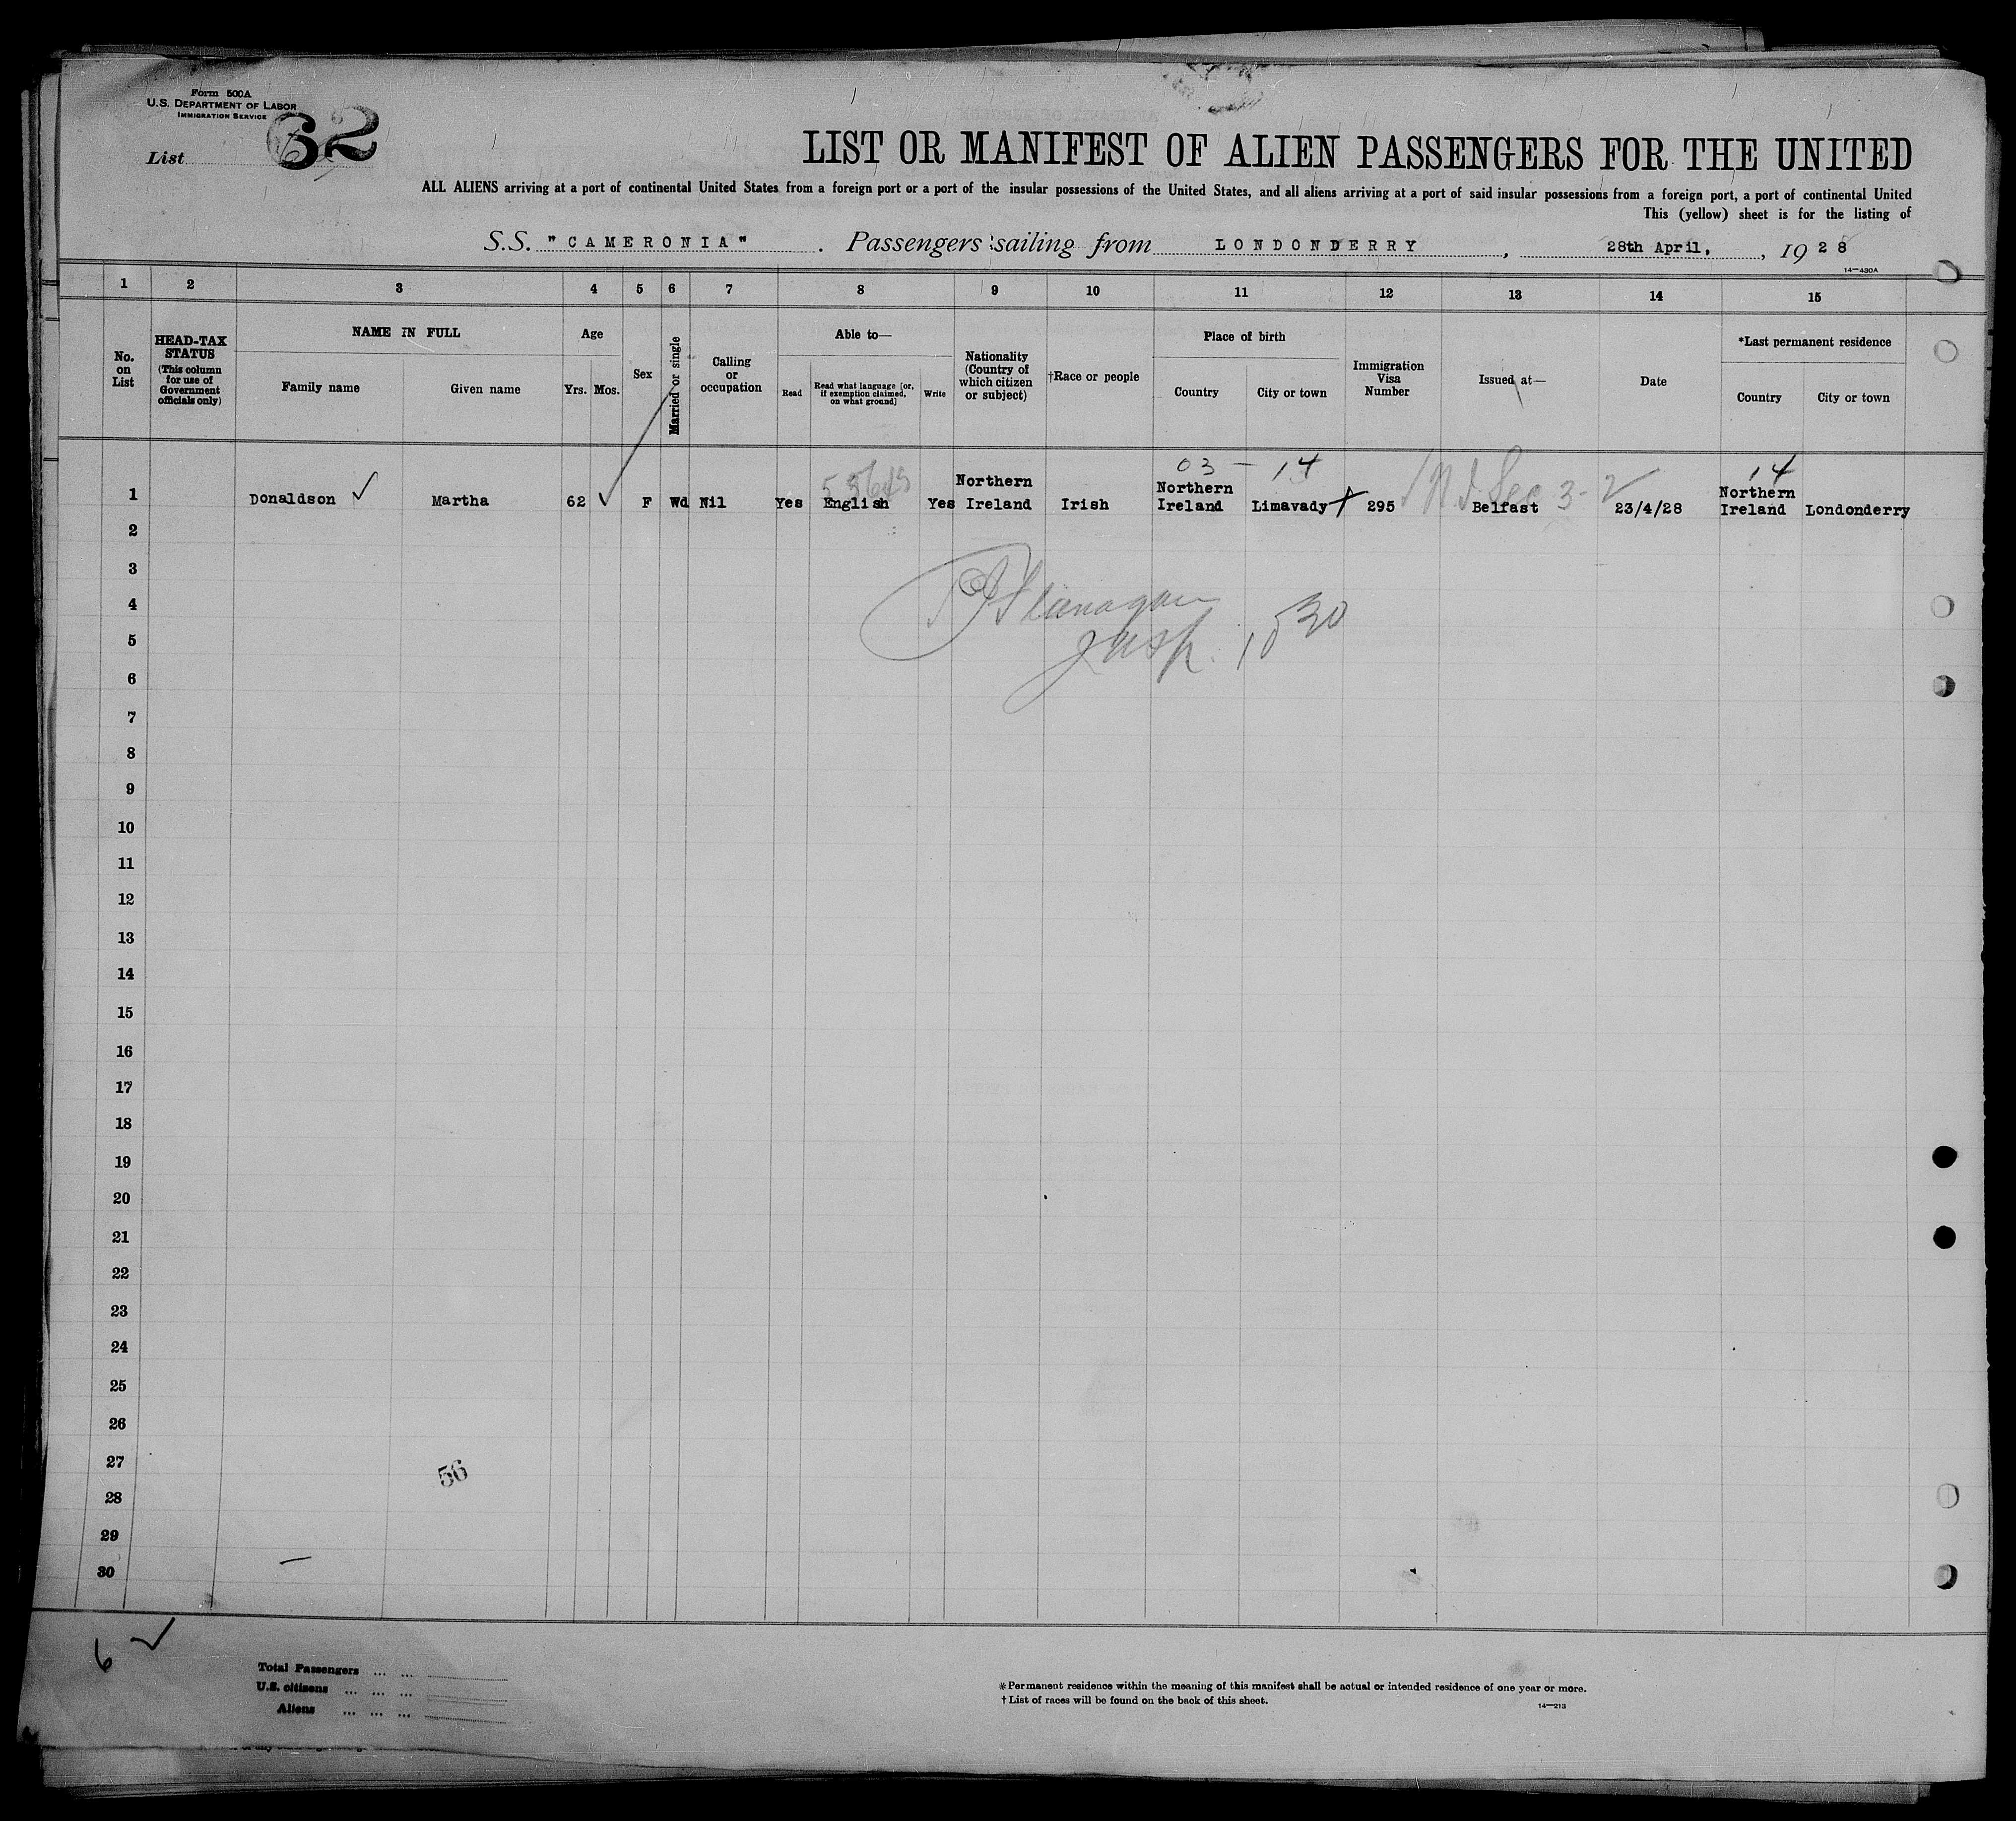 Form 500A
U.S. DEPARTMENT OF LABOR
IMMIGRATION SERVICE
List 62
LIST OR MANIFEST OF ALIEN PASSENGERS FOR THE UNITED
ALL ALIENS arriving at a port of continental United States from a foreign port or a port of the insular possessions of the United States, and all aliens arriving at a port of said insular possessions from a foreign port, a port of continental United
This (yellow) sheet is for the listing of
S.S. "CAMERONIA". Passengers sailing from LONDONDERRY, 28th April, 1928
14—430A
1 2 3 4 5 6 7 8 9 10 11 12 13 14 15
No. on List
HEAD-TAX STATUS (This column for use of Government officials only)
NAME IN FULL
Family name Given name
Age
Yrs. Mos.
Sex
Married or single
Calling or occupation
Able to—
Read Read what language [or, if exemption claimed, on what ground] Write
Nationality (Country of which citizen or subject)
†Race or people
Place of birth
Country City or town
Immigration Visa Number
Issued at—
Date
*Last permanent residence
Country City or town
03 – 14 14
1 Donaldson Martha 62 F Wd Nil Yes English Yes Northern Ireland Irish Northern Ireland Limavady 295 Belfast 23/4/28 Northern Ireland Londonderry
2
3
4 Flanagan
5 Insp. 10 30
6
7
8
9
10
11
12
13
14
15
16
17
18
19
20
21
22
23
24
25
26
27
56
28
29
30
6
Total Passengers ... ...
U.S. citizens ... ... ...
Aliens ... ... ...
*Permanent residence within the meaning of this manifest shall be actual or intended residence of one year or more.
†List of races will be found on the back of this sheet.
14—213